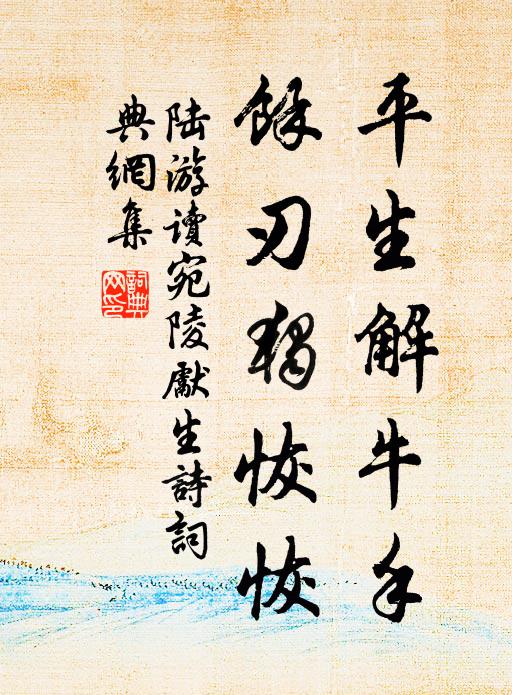 平生解牛手
餘刃獨恢恢
陸游讀宛陵獻生詩詞
典網集
詞典網印